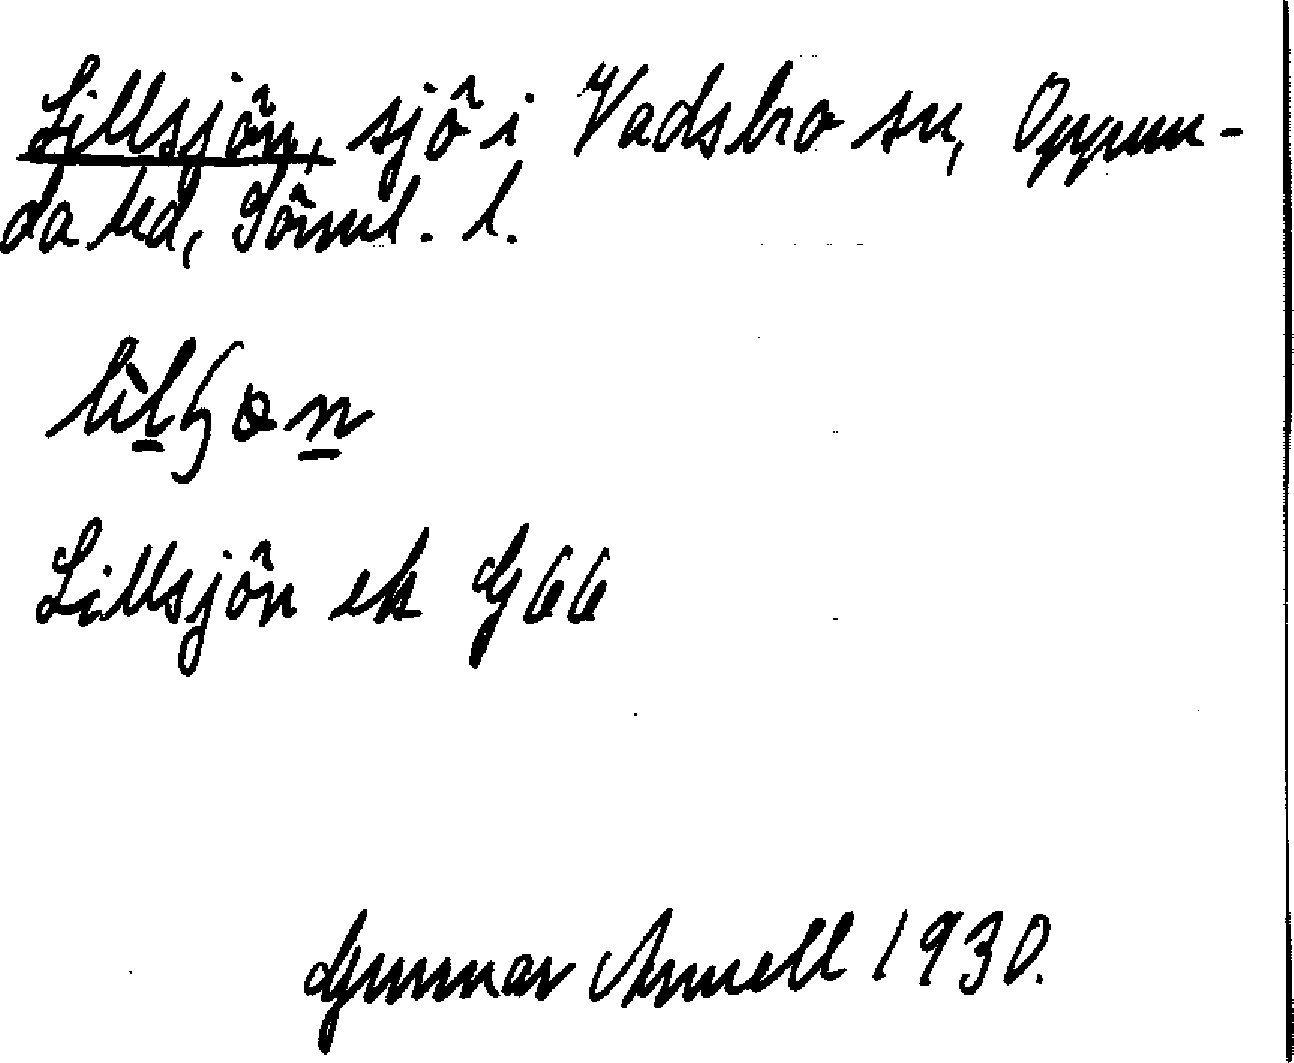 Lillsjön, sjö i Vadsbro sn, Oppun-
da hd, Söml. l.
lìlɧøn
Lillsjön ek G 66
Gunnar Annell 1930.